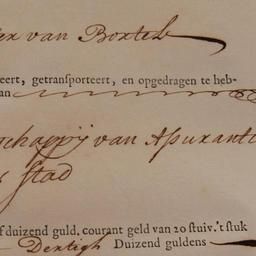 van Boxtel
eert, getransporteert, en opgedragen te heb-
an
schappij van Assurantie
stad
f duizend guld. courant geld van 20 stuiv. 't stuk
Dertigh Duizend guldens